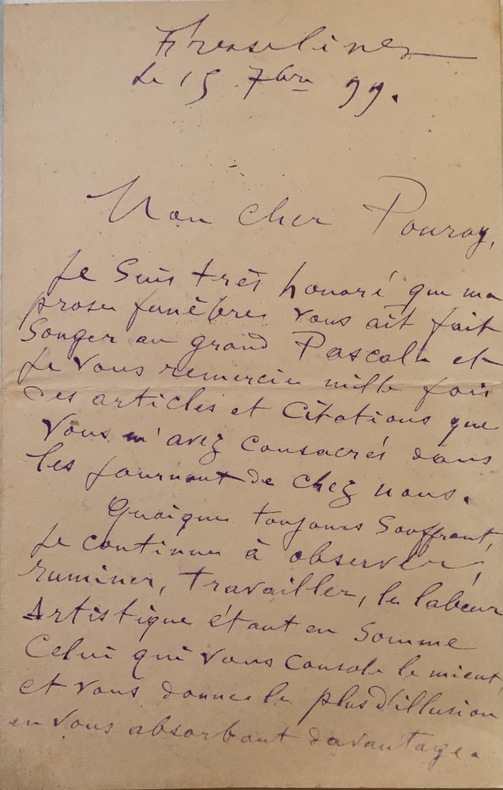 Fresselines
Le 15 7bre 99.
Mon cher Pouroy,
Je suis très honoré que ma
prose funèbre vous ait fait
songer au grand Pascal et
je vous remercie mille fois
des articles et citations que
vous m'avez consacrés dans
les journaux de chez nous.
Quoique toujours souffrant,
je continue à observer,
ruminer, travailler, le labeur
artistique étant en somme
celui qui vous console le mieux
et vous donne le plus d'illusion
en vous absorbant davantage.